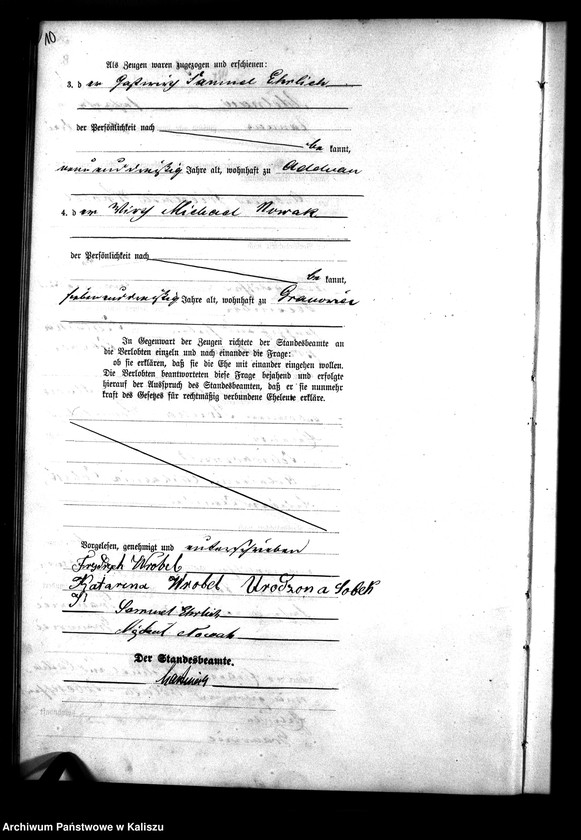 10
Als Zeugen waren zugezogen und erschienen:
3. d er Gastwirth Samuel Ehrlich
der Persönlichkeit nach
be kannt,
neun und dreißig Jahre alt, wohnhaft zu Adelnau
4. d er Wirth Michael Nowak
der Persönlichkeit nach
be kannt,
sieben und dreißig Jahre alt, wohnhaft zu Granowiec
In Gegenwart der Zeugen richtete der Standesbeamte an
die Verlobten einzeln und nach einander die Frage:
ob sie erklären, daß sie die Ehe mit einander eingehen wollen.
Die Verlobten beantworteten diese Frage bejahend und erfolgte
hierauf der Ausspruch des Standesbeamten, daß er sie nunmehr
kraft des Gesetzes für rechtmäßig verbundene Eheleute erkläre.
Vorgelesen, genehmigt und unterschrieben
Frydrych Wrobel
Katarena Wrobel Urodzona Sobek
Samuel Ehrlich
Nowak
Der Standesbeamte.
Archiwum Państwowe w Kaliszu